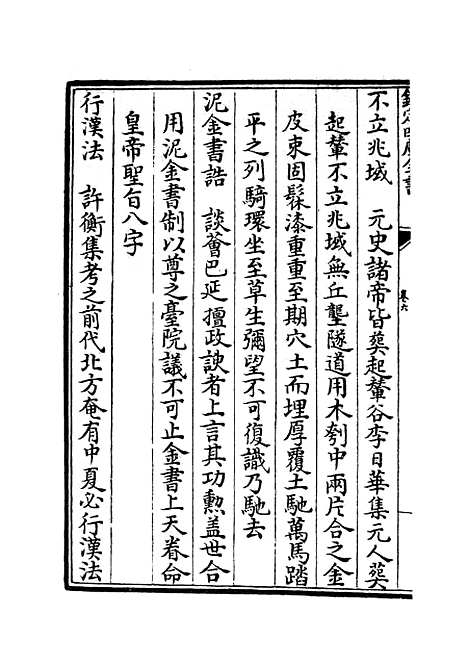 欽定四庫全書
卷六
不立兆域　元史諸帝皆葬起輦谷李日華集元人葬
起輦不立兆域無丘壟隧道用木刳中兩片合之金
皮束固髹漆重重至期穴土而埋厚覆土馳萬馬踏
平之列騎環坐至草生彌望不可復識乃馳去
泥金書誥　談薈巴延擅政諛者上言其功勲盖世合
用泥金書制以尊之臺院議不可止金書上天眷命
皇帝聖旨八字
行漢法　許衡集考之前代北方奄有中夏必行漢法